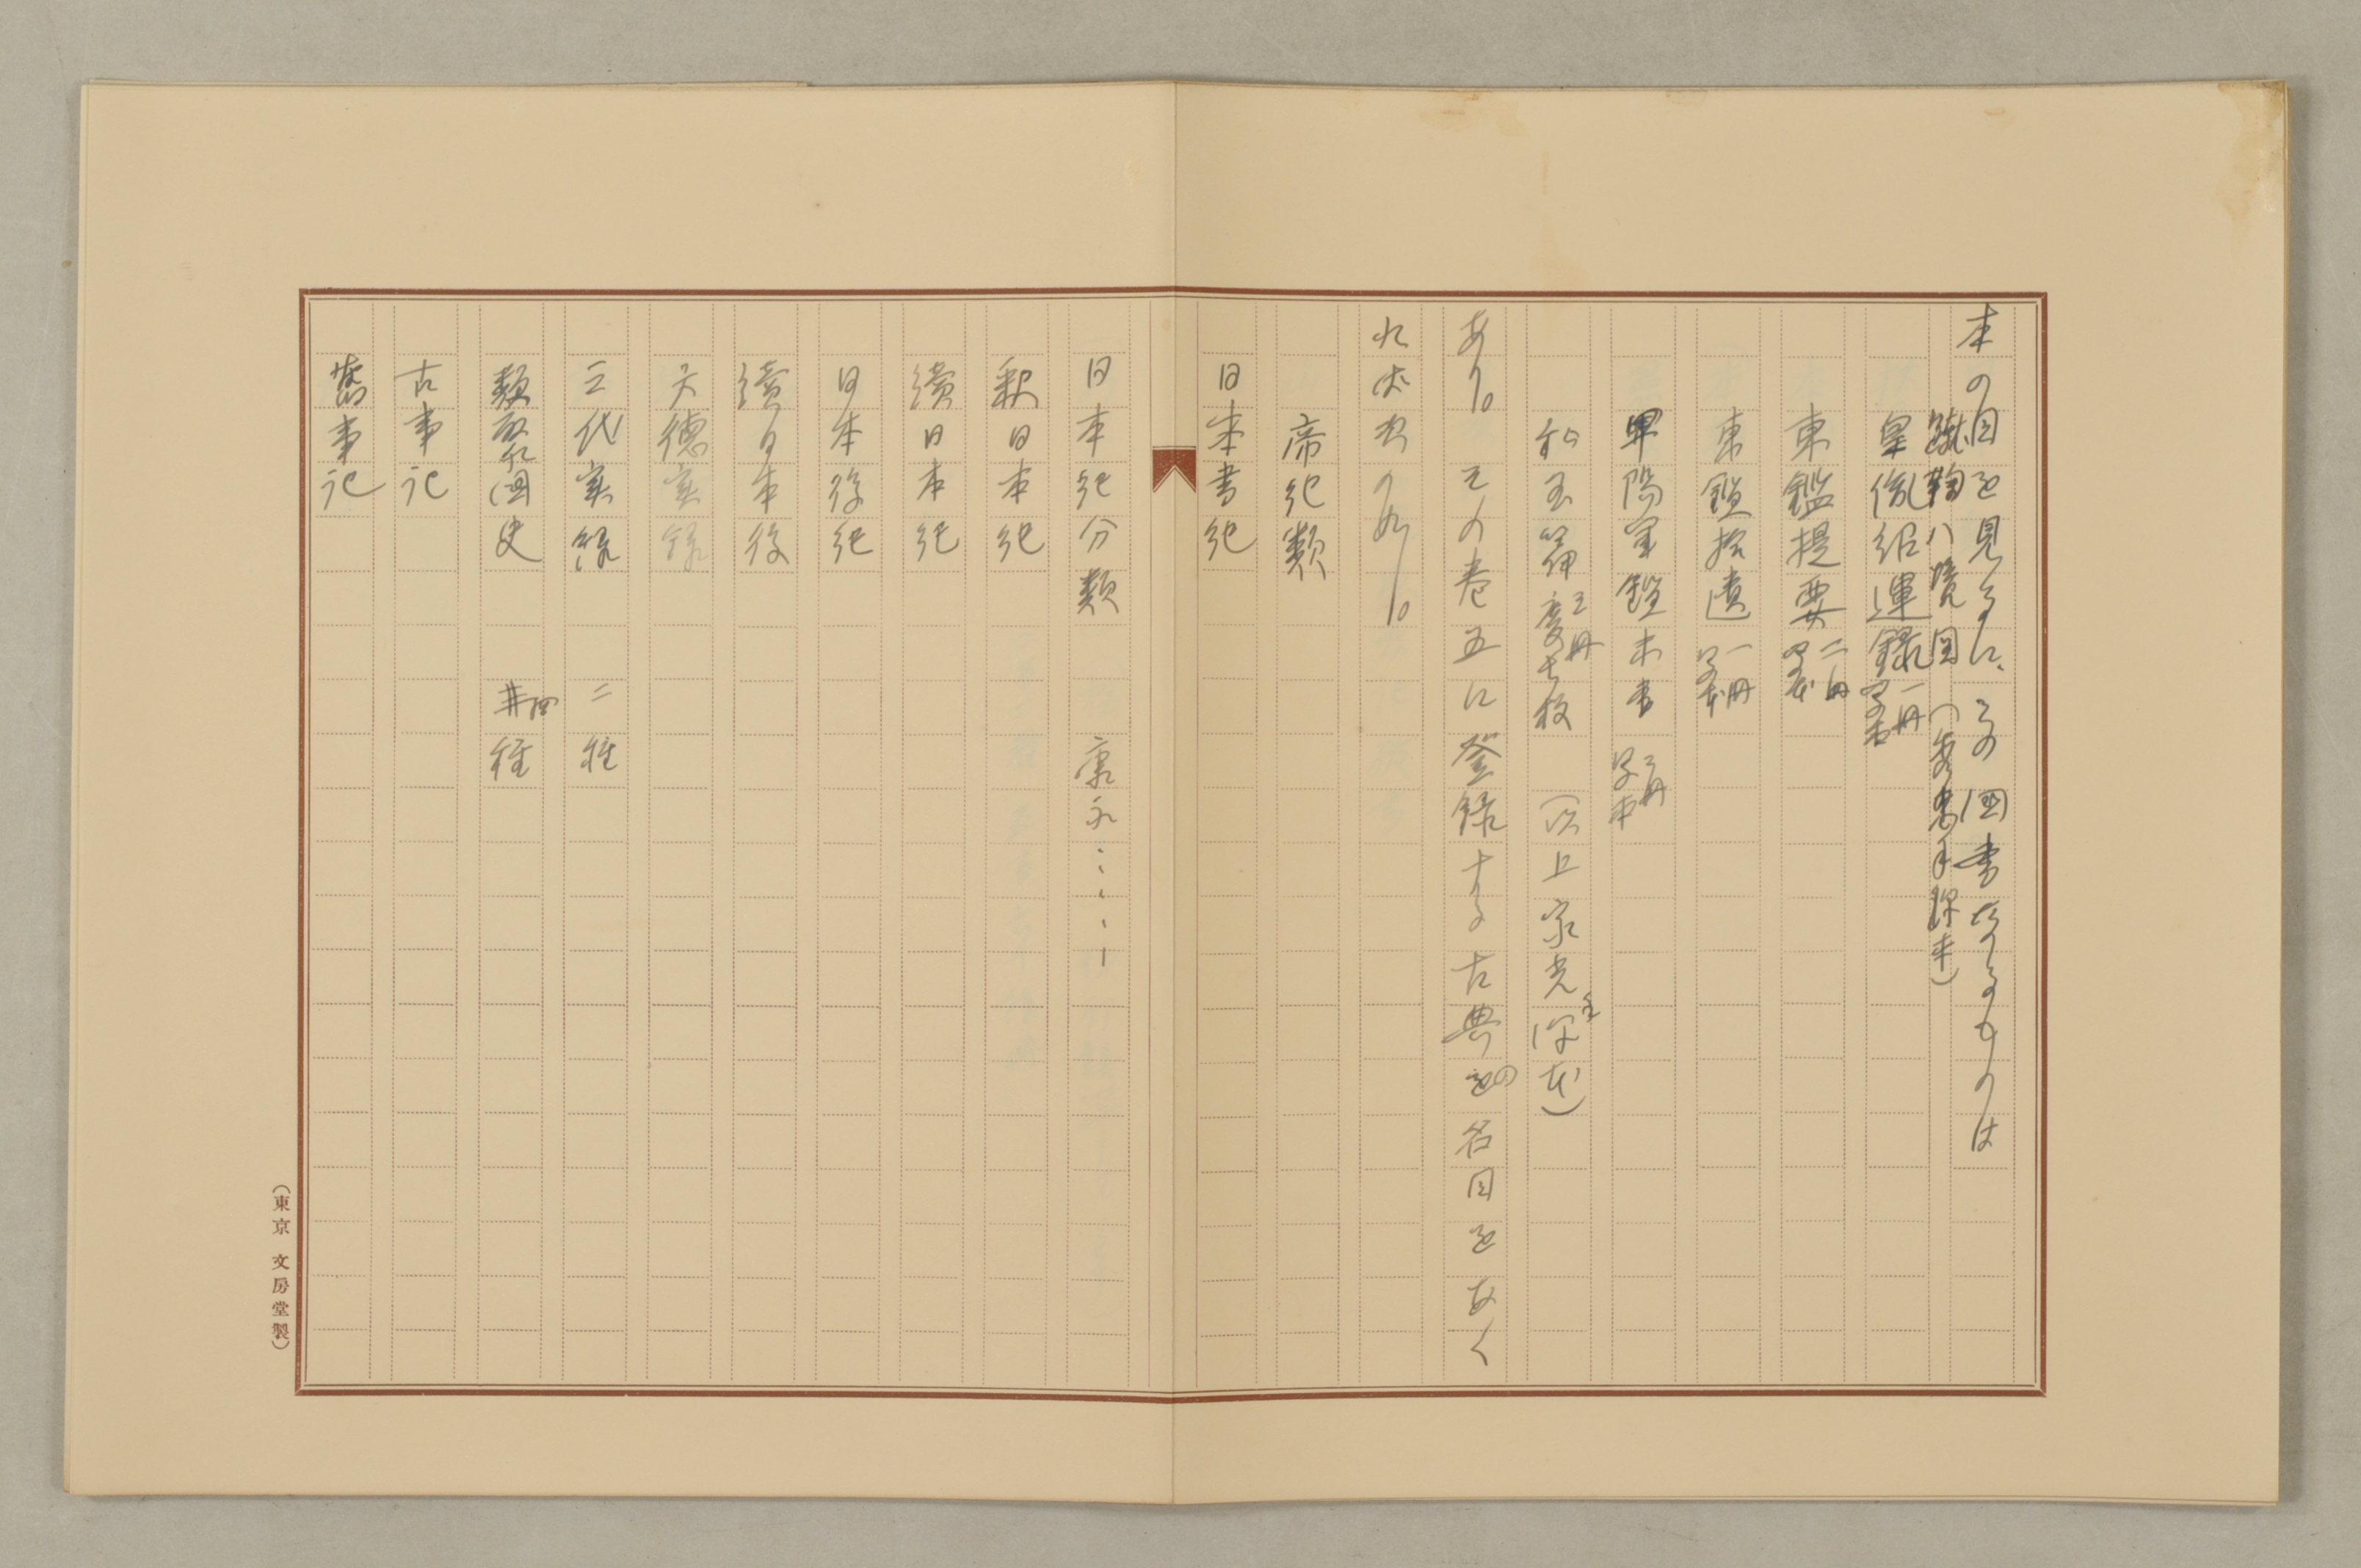 本の目を見るに、その図書なるものは
蹴鞠八境図(
皇胤紹運録 一冊 写本
東鑑提要 二冊 写本
東鑑拾遺 一冊 写本
甲陽軍鑑末書 写本
和玉篇 三冊 慶長板 (以上家光手沢本)
あり。その巻五に登録する古典の名目をあぐ
れば次の如し。
帝紀類
日本書紀
日本紀分類 寛永
釈日本紀
続日本紀
日本後紀
續日本後
文徳実録
三代実録 二種
類聚国史 井四種
古事記
舊事記
(東京 文房堂製)